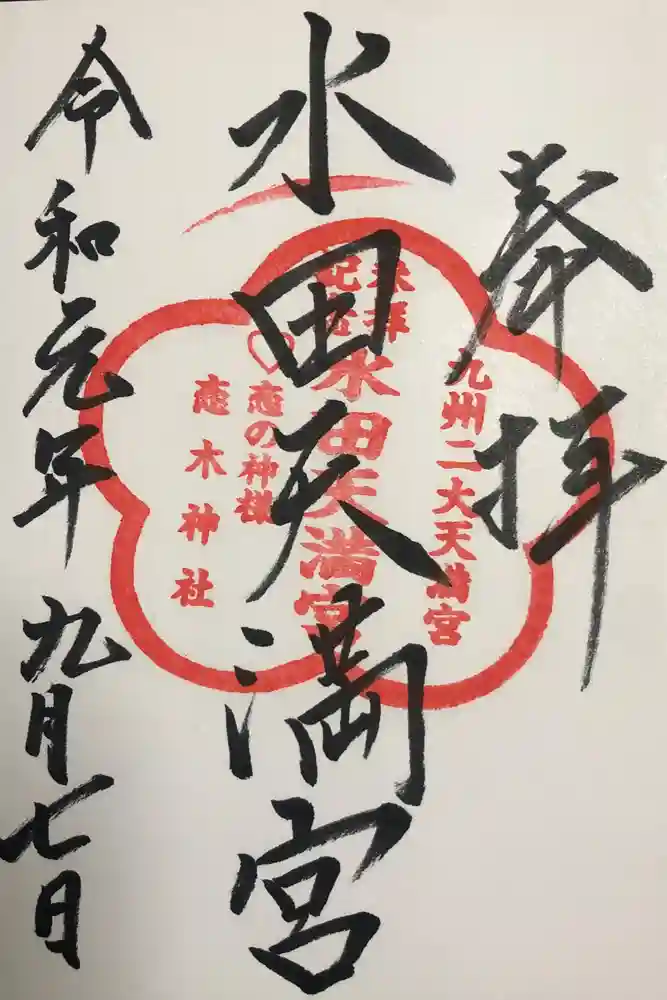 奉拝
九州二大天満宮
参拝
記念
水田天満宮
水田天満宮
恋の神様
恋木神社
令和元年九月七日